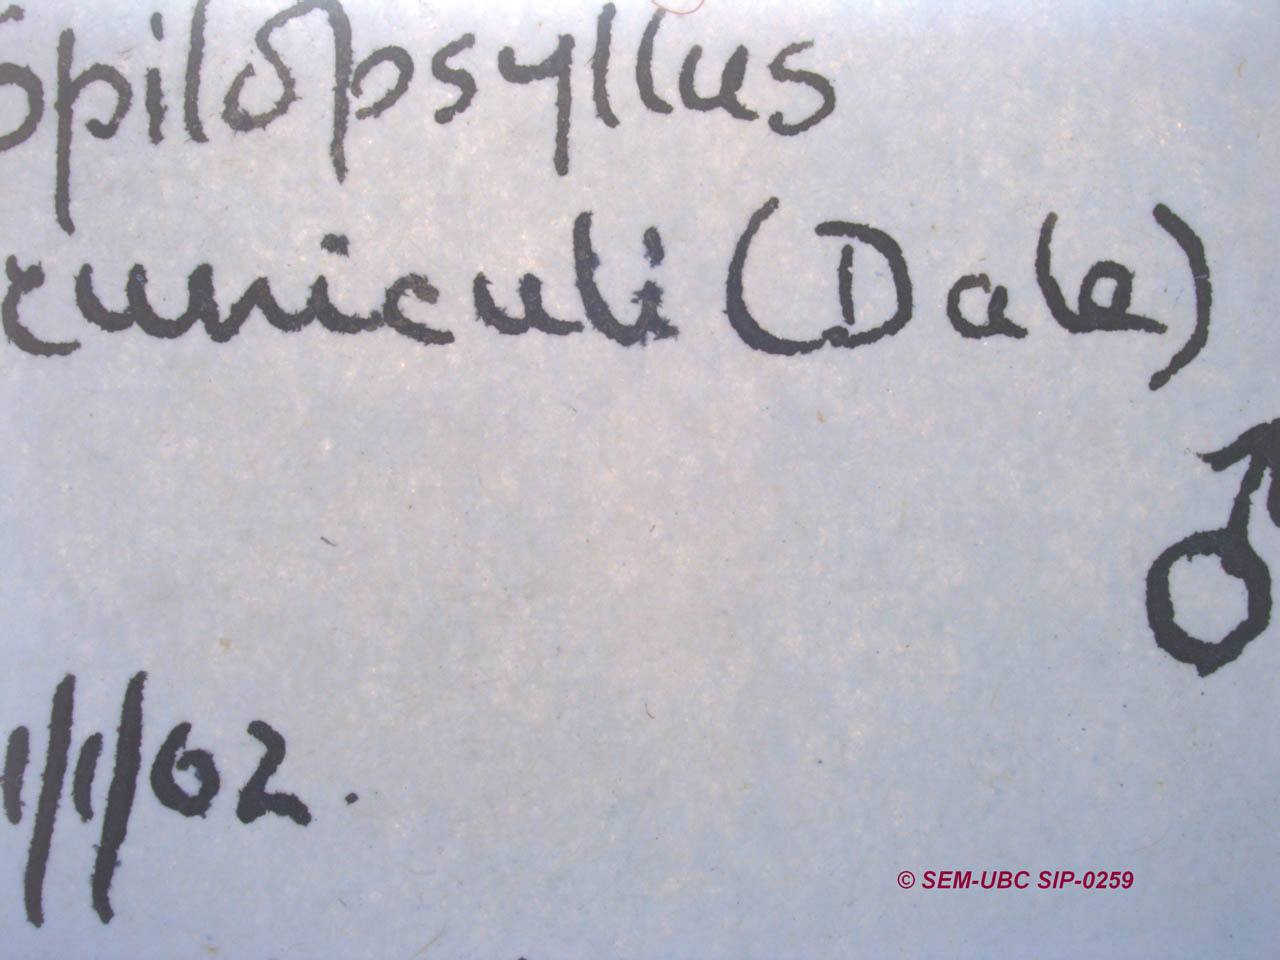 Spilopsyllus
cuniculi (Dale)
♂
1/1/02.
© SEM-UBC SIP-0259